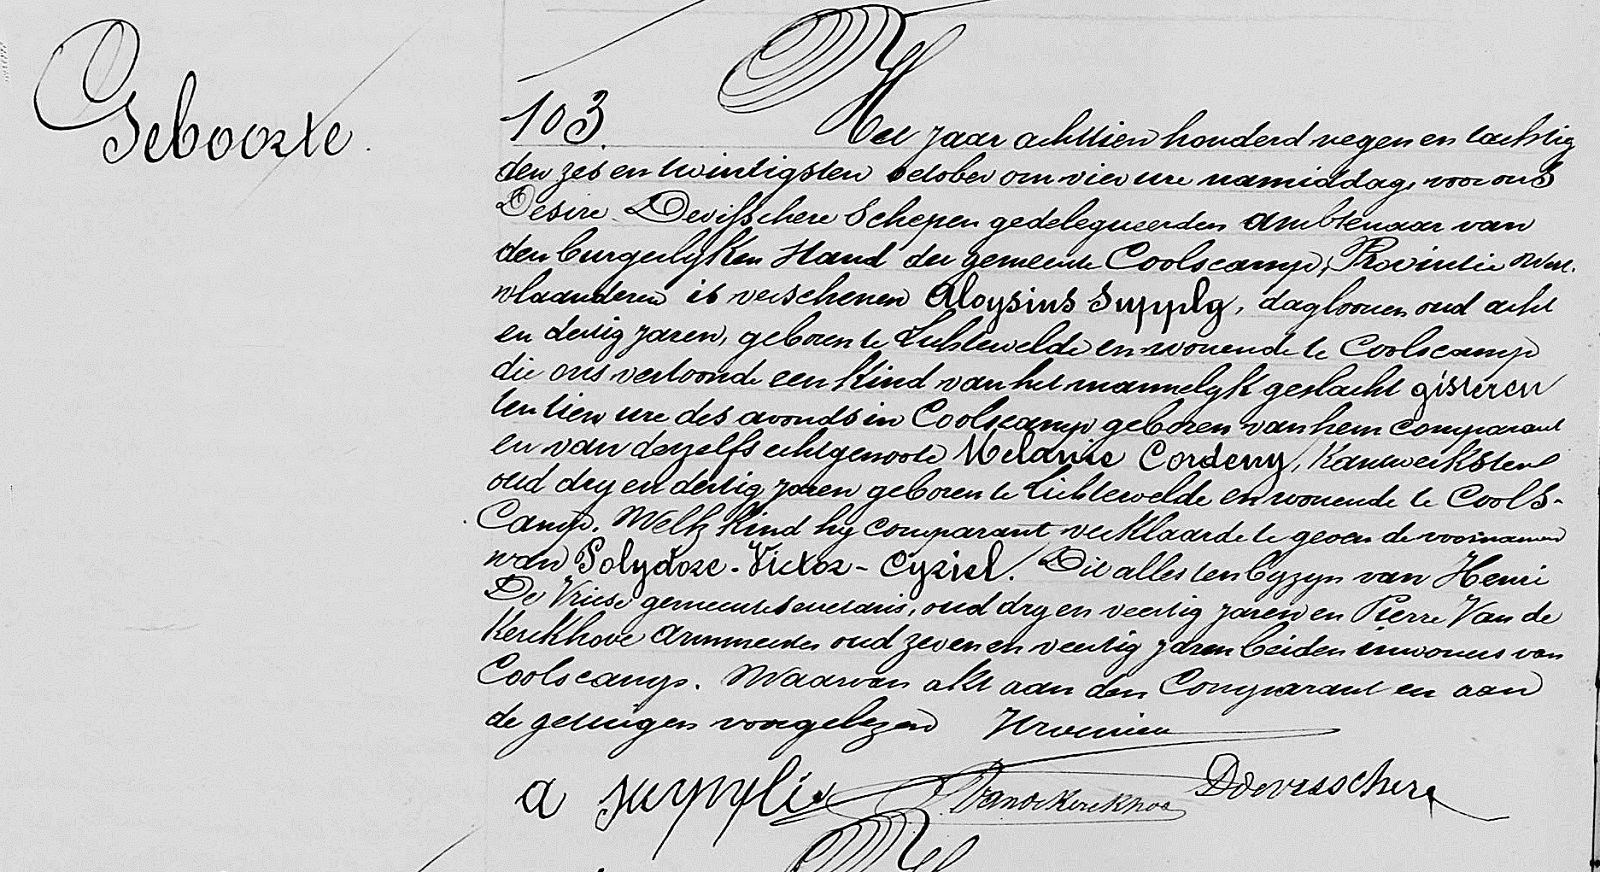 Geboorte.
103. Het jaar achttien honderd negen en tachtig
den zes en twintigsten october om vier ure namiddag, voor ons
Desiré Devisschere Schepen gedelegueerden ambtenaar van
den burgerlyken stand der gemeente Coolscamp, Provintie West-
vlaanderen is verschenen Aloysius Supply, daglooner oud acht
en dertig jaren, geboren te Lichtervelde en wonende te Coolscamp
die ons vertoonde een kind van het mannelyk geslacht gisteren
ten tien ure des avonds in Coolscamp geboren van hem comparant
en van deszelfs echtgenoote Melanie Cordeny, Kantwerkster
oud dry en dertig jaren geboren te Lichtervelde en wonende te Cools-
camp. Welk kind hy comparant verklaarde te geven de voornamen
van Polydore-Victor-Cyriel. Dit alles ten byzyn van Henri
De Vriese gemeentesecretaris, oud dry en veertig jaren en Pierre Van de
Kerckhove armmeester oud zeven en veertig jaren beiden inwoners van
Coolscamp. Waarvan akt aan den Comparant en aan
de getuigen voorgelezen
a supplie Vandekerckhove D Devisschere